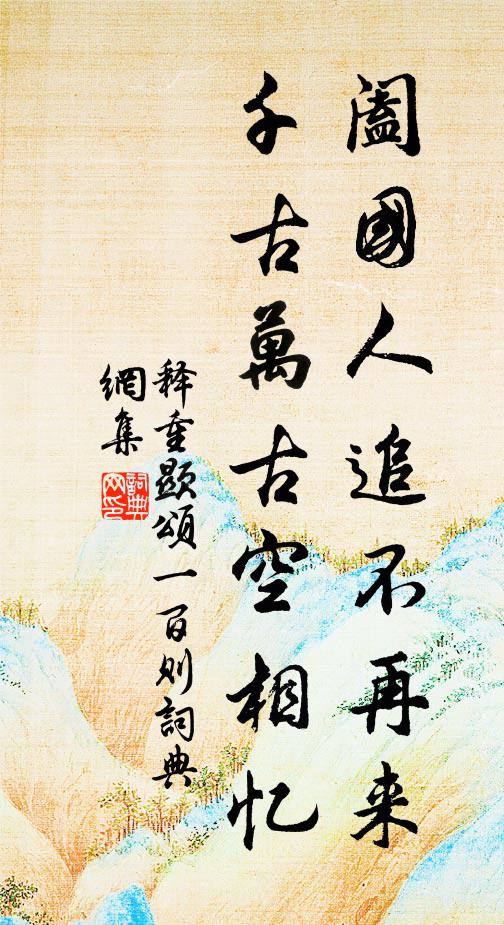 阖國人追不再来
千古萬古空相忆
释重显颂一百则詞典
網集
詞典
网印